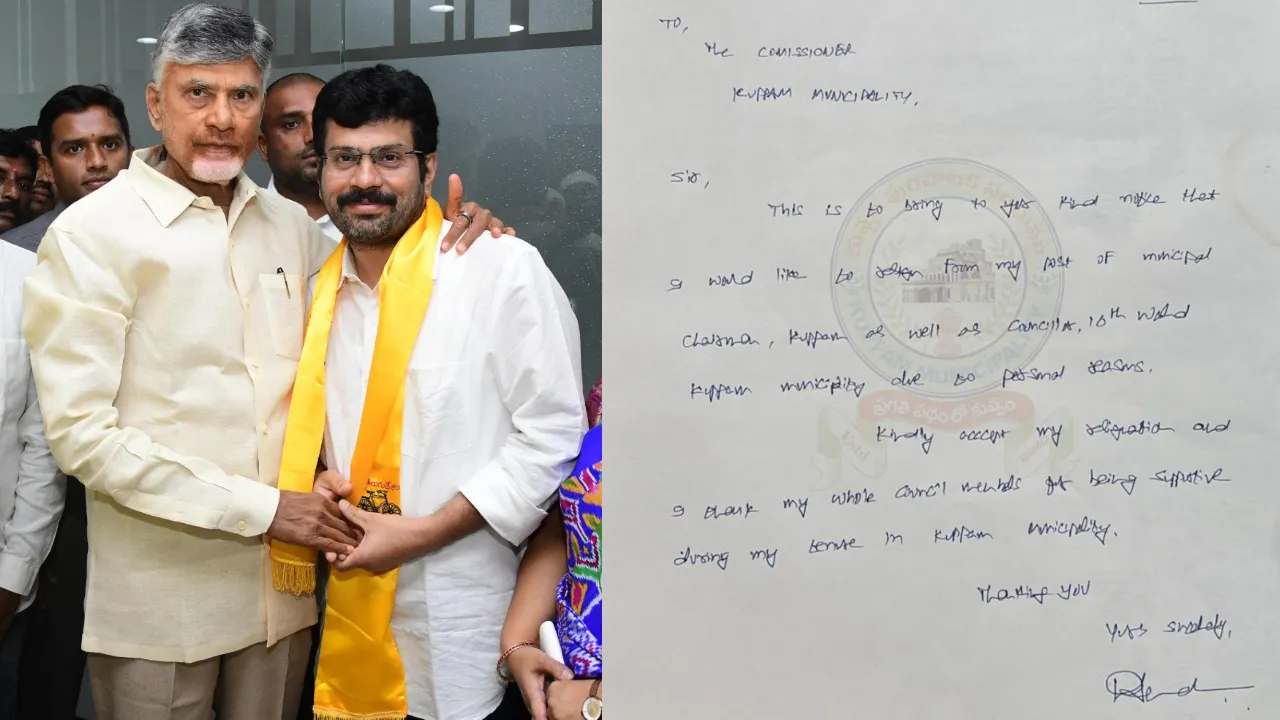 తెలుగుదేశం
TO,
The COMISSIONER
KUPPAM MUNICIPALITY.
Sir,
This is to bring to your kind notice that
I would like to resign from my post of municipal
chairman, kuppam as well as councillor, 16th ward
kuppam municiplity due to personal reasons.
Kindly accept my resignation and
I thank my whole council members for being supportive
during my tenure in kuppam municipality.
Thanking you
yours sincerely,
KUPPAM MUNICIPALITY
ప్రగతి పథంలో కుప్పం
Estd